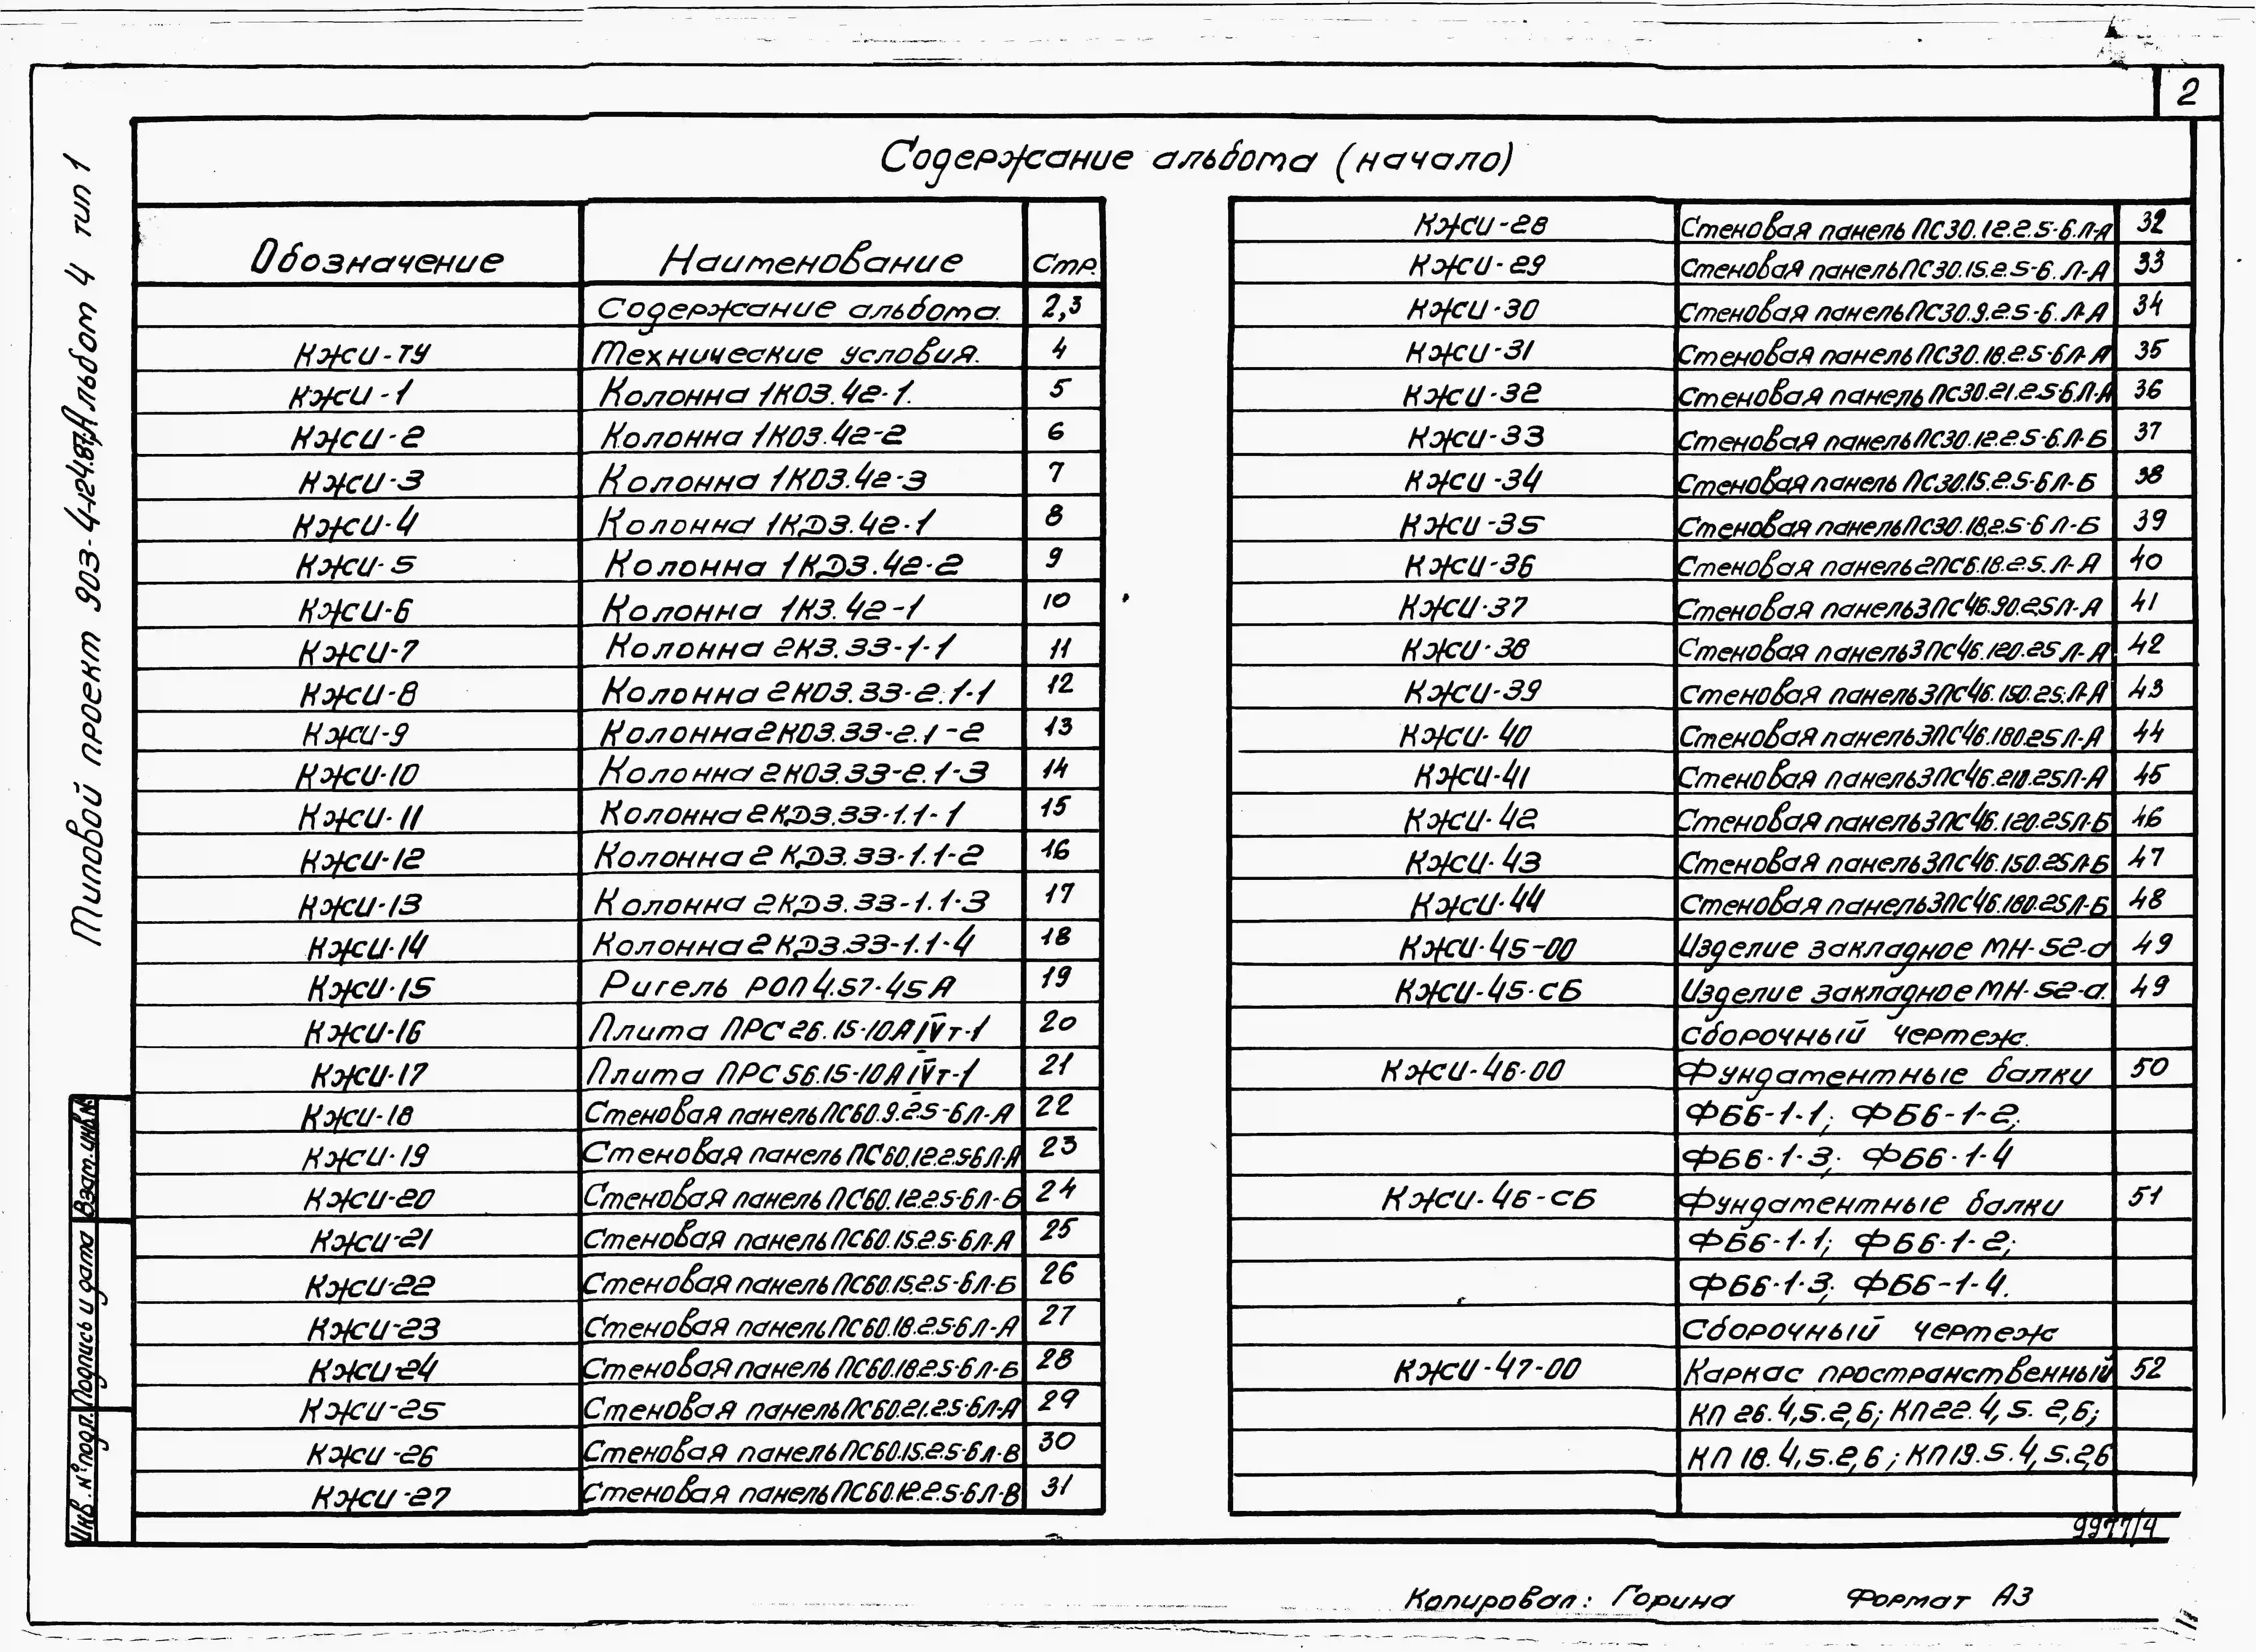 2
Содержание альбома (начало)
Обозначение Наименование Стр.
Содержание альбома. 2,3
КЖИ-ТУ Технические условия. 4
КЖИ-1 Колонна 1КО3.42-1. 5
КЖИ-2 Колонна 1КО3.42-2 6
КЖИ-3 Колонна 1КО3.42-3 7
КЖИ-4 Колонна 1КД3.42-1 8
КЖИ-5 Колонна 1КД3.42-2 9
КЖИ-6 Колонна 1К3.42-1 10
КЖИ-7 Колонна 2К3.33-1-1 11
КЖИ-8 Колонна 2КО3.33-2.1-1 12
КЖИ-9 Колонна 2КО3.33-2.1-2 13
КЖИ-10 Колонна 2КО3.33-2.1-3 14
КЖИ-11 Колонна 2КД3.33-1.1-1 15
КЖИ-12 Колонна 2КД3.33-1.1-2 16
КЖИ-13 Колонна 2КД3.33-1.1-3 17
КЖИ-14 Колонна 2КД3.33-1.1-4 18
КЖИ-15 Ригель РОП4.57-45А 19
КЖИ-16 Плита ПРС26.15-10АIVт-1 20
КЖИ-17 Плита ПРС56.15-10АIVт-1 21
КЖИ-18 Стеновая панель ПС60.9.2.5-6Л-А 22
КЖИ-19 Стеновая панель ПС60.12.2.5-6Л-А 23
КЖИ-20 Стеновая панель ПС60.12.2.5-6Л-Б 24
КЖИ-21 Стеновая панель ПС60.15.2.5-6Л-А 25
КЖИ-22 Стеновая панель ПС60.15.2.5-6Л-Б 26
КЖИ-23 Стеновая панель ПС60.18.2.5-6Л-А 27
КЖИ-24 Стеновая панель ПС60.18.2.5-6Л-Б 28
КЖИ-25 Стеновая панель ПС60.21.2.5-6Л-А 29
КЖИ-26 Стеновая панель ПС60.15.2.5-6Л-В 30
КЖИ-27 Стеновая панель ПС60.12.2.5-6Л-В 31
КЖИ-28 Стеновая панель ПС30.12.2.5-6.Л-А 32
КЖИ-29 Стеновая панель ПС30.15.2.5-6.Л-А 33
КЖИ-30 Стеновая панель ПС30.9.2.5-6.Л-А 34
КЖИ-31 Стеновая панель ПС30.18.2.5-6Л-А 35
КЖИ-32 Стеновая панель ПС30.21.2.5-6.Л-А 36
КЖИ-33 Стеновая панель ПС30.12.2.5-6.Л-Б 37
КЖИ-34 Стеновая панель ПС30.15.2.5-6Л-Б 38
КЖИ-35 Стеновая панель ПС30.18.2.5-6Л-Б 39
КЖИ-36 Стеновая панель 2ПС6.18.2.5.Л-А 40
КЖИ-37 Стеновая панель 3ПС46.90.25Л-А 41
КЖИ-38 Стеновая панель 3ПС46.120.25Л-А 42
КЖИ-39 Стеновая панель 3ПС46.150.25.Л-А 43
КЖИ-40 Стеновая панель 3ПС46.180.25Л-А 44
КЖИ-41 Стеновая панель 3ПС46.210.25Л-А 45
КЖИ-42 Стеновая панель 3ПС46.120.25Л-Б 46
КЖИ-43 Стеновая панель 3ПС46.150.25Л-Б 47
КЖИ-44 Стеновая панель 3ПС46.180.25Л-Б 48
КЖИ-45-00 Изделие закладное МН-52-а 49
КЖИ-45-СБ Изделие закладное МН-52-а. 49
Сборочный чертеж.
КЖИ-46-00 Фундаментные балки 50
ФБ6-1-1; ФБ6-1-2;
ФБ6-1-3; ФБ6-1-4
КЖИ-46-СБ Фундаментные балки 51
ФБ6-1-1; ФБ6-1-2;
ФБ6-1-3; ФБ6-1-4.
Сборочный чертеж
КЖИ-47-00 Каркас пространственный 52
КП26.4,5.2,6; КП22.4,5.2,6;
КП18.4,5.2,6; КП19.5.4,5.2,6
Типовой проект 903-4-124.87 Альбом 4 тип 1
Взам.инв.№
Подпись и дата
Инв.№ подл.
9977/4
Копировал: Горина Формат А3